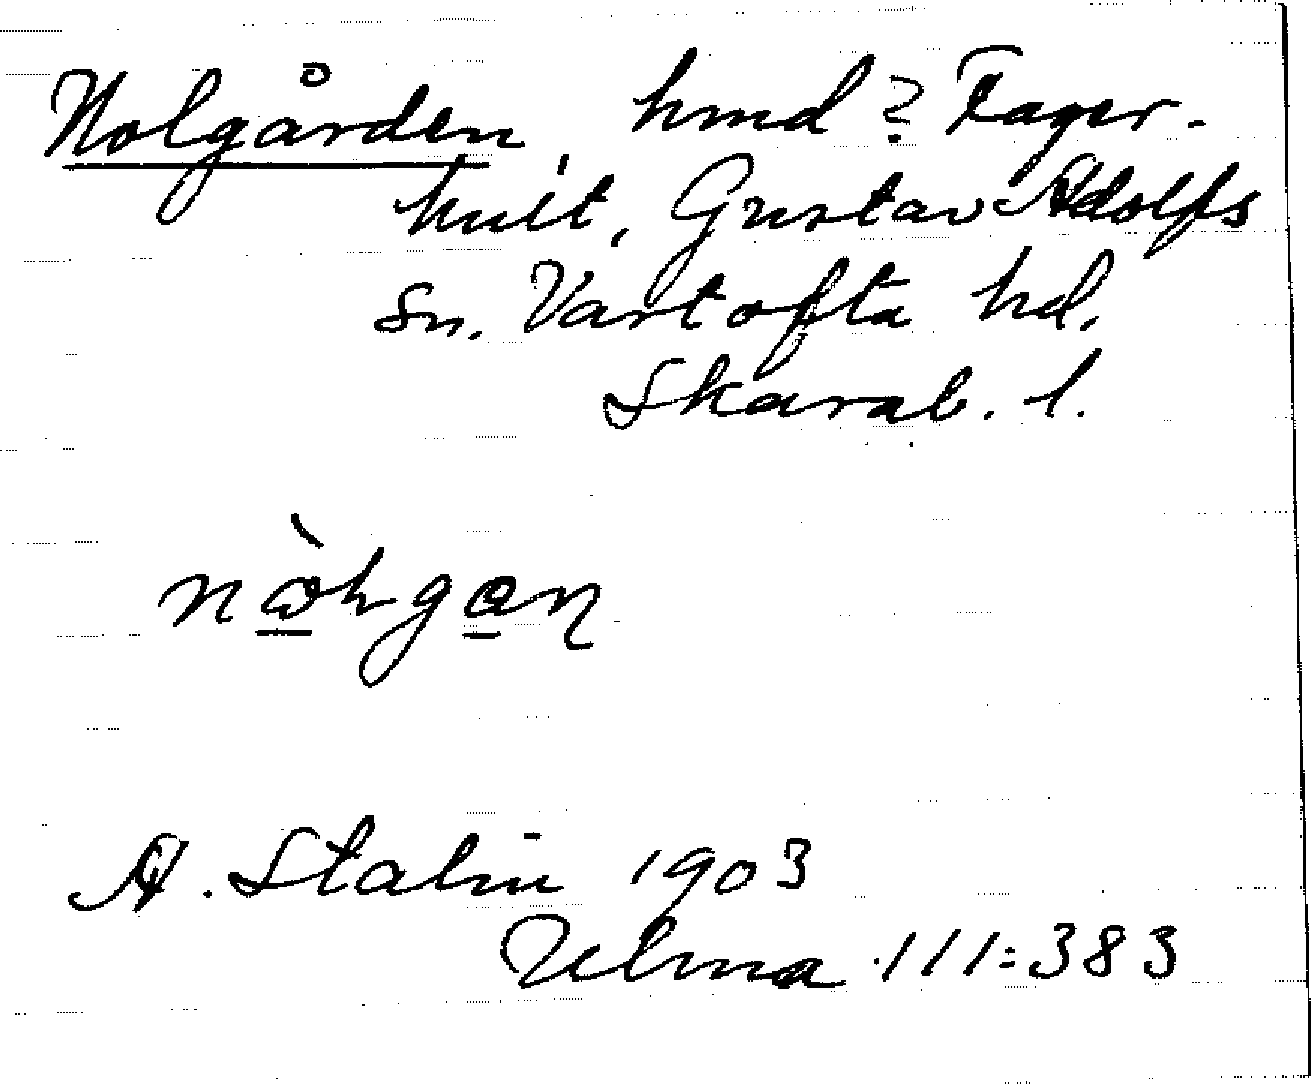 Nolgården, hmd? Fager-
hult, Gustav Adolfs
sn. Vartofta hd.
Skarab. l.
A. Stalin 1903
Ulma 111:383